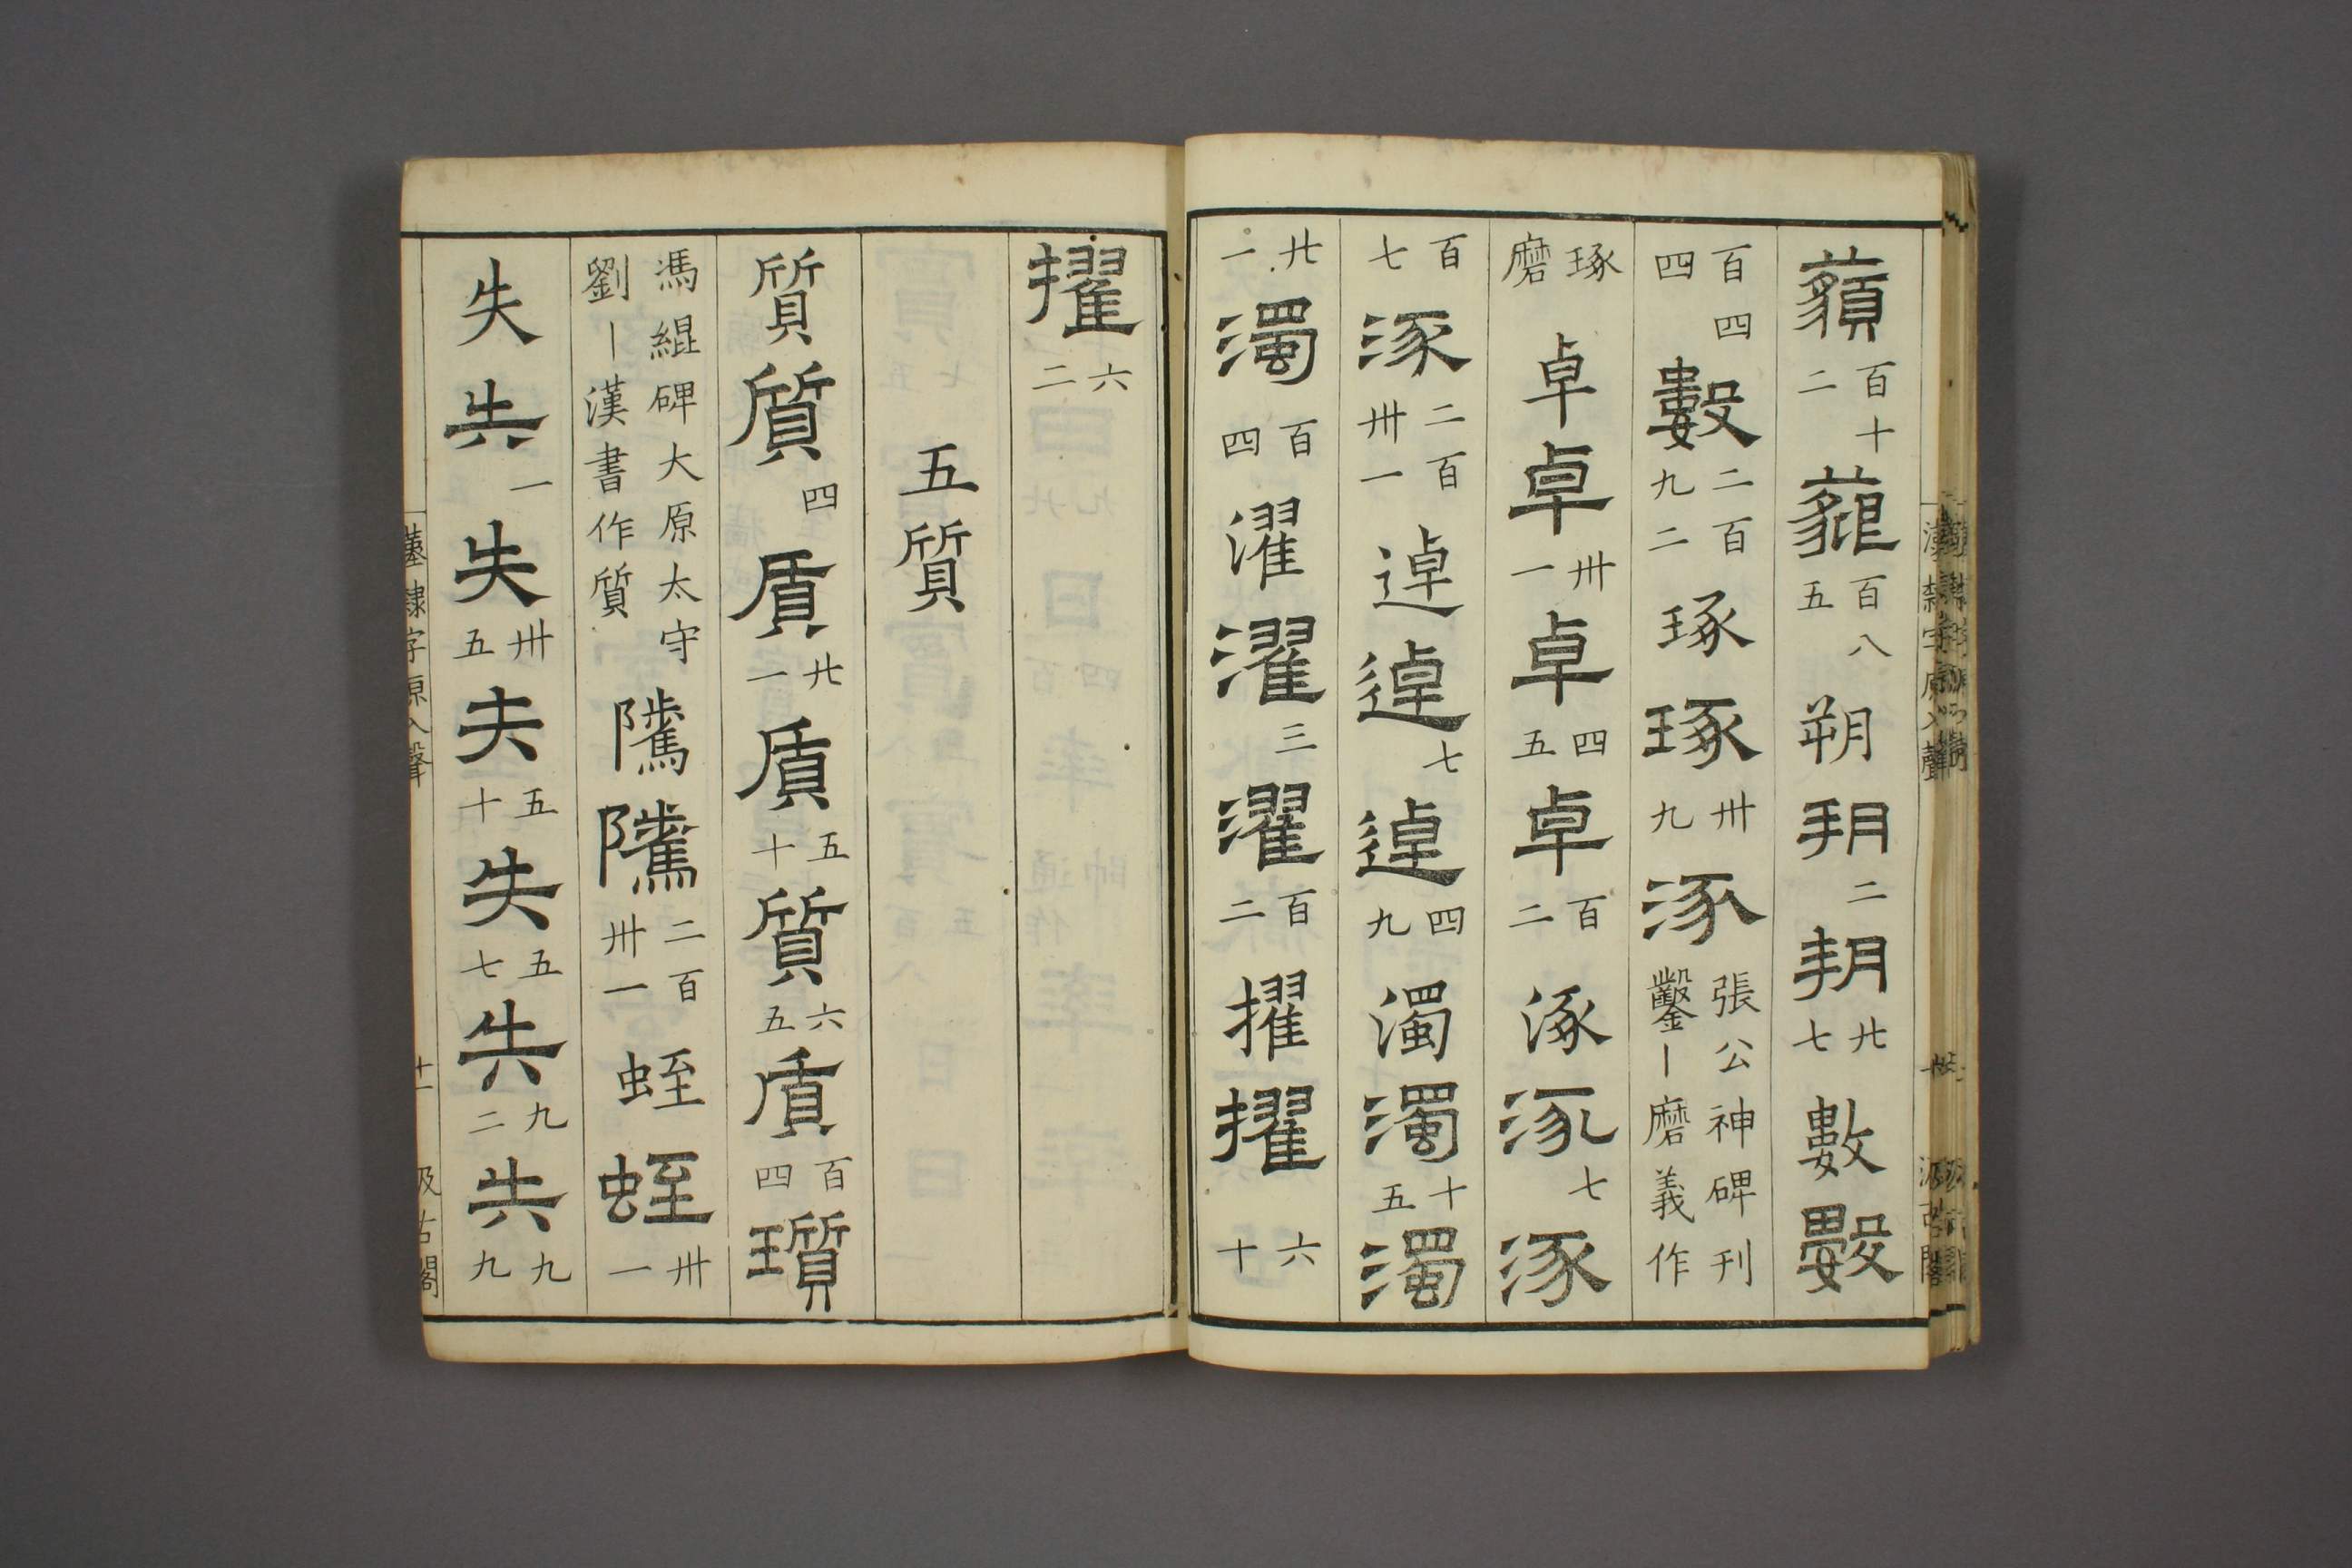 藐百十二藐百八五朔朔二朔廿七數數
百四四數二百九二琢琢卅九涿張公神碑刊鑿丨磨義作
琢磨卓卓卅一卓四五卓百二涿涿七涿
百七涿二百卅一逴逴七逴四九濁濁十五濁
廿一濁百四濯濯三濯百二擢擢六十
擢六二
五質
質質四質廿一質五十質六五質百四瓆
馮緄碑大原太守劉丨漢書作質騭騭二百卅一蛭蛭卅一
失失一失卅五失五十失五七失九二失九九
漢隸字原入聲 十一 汲古閣